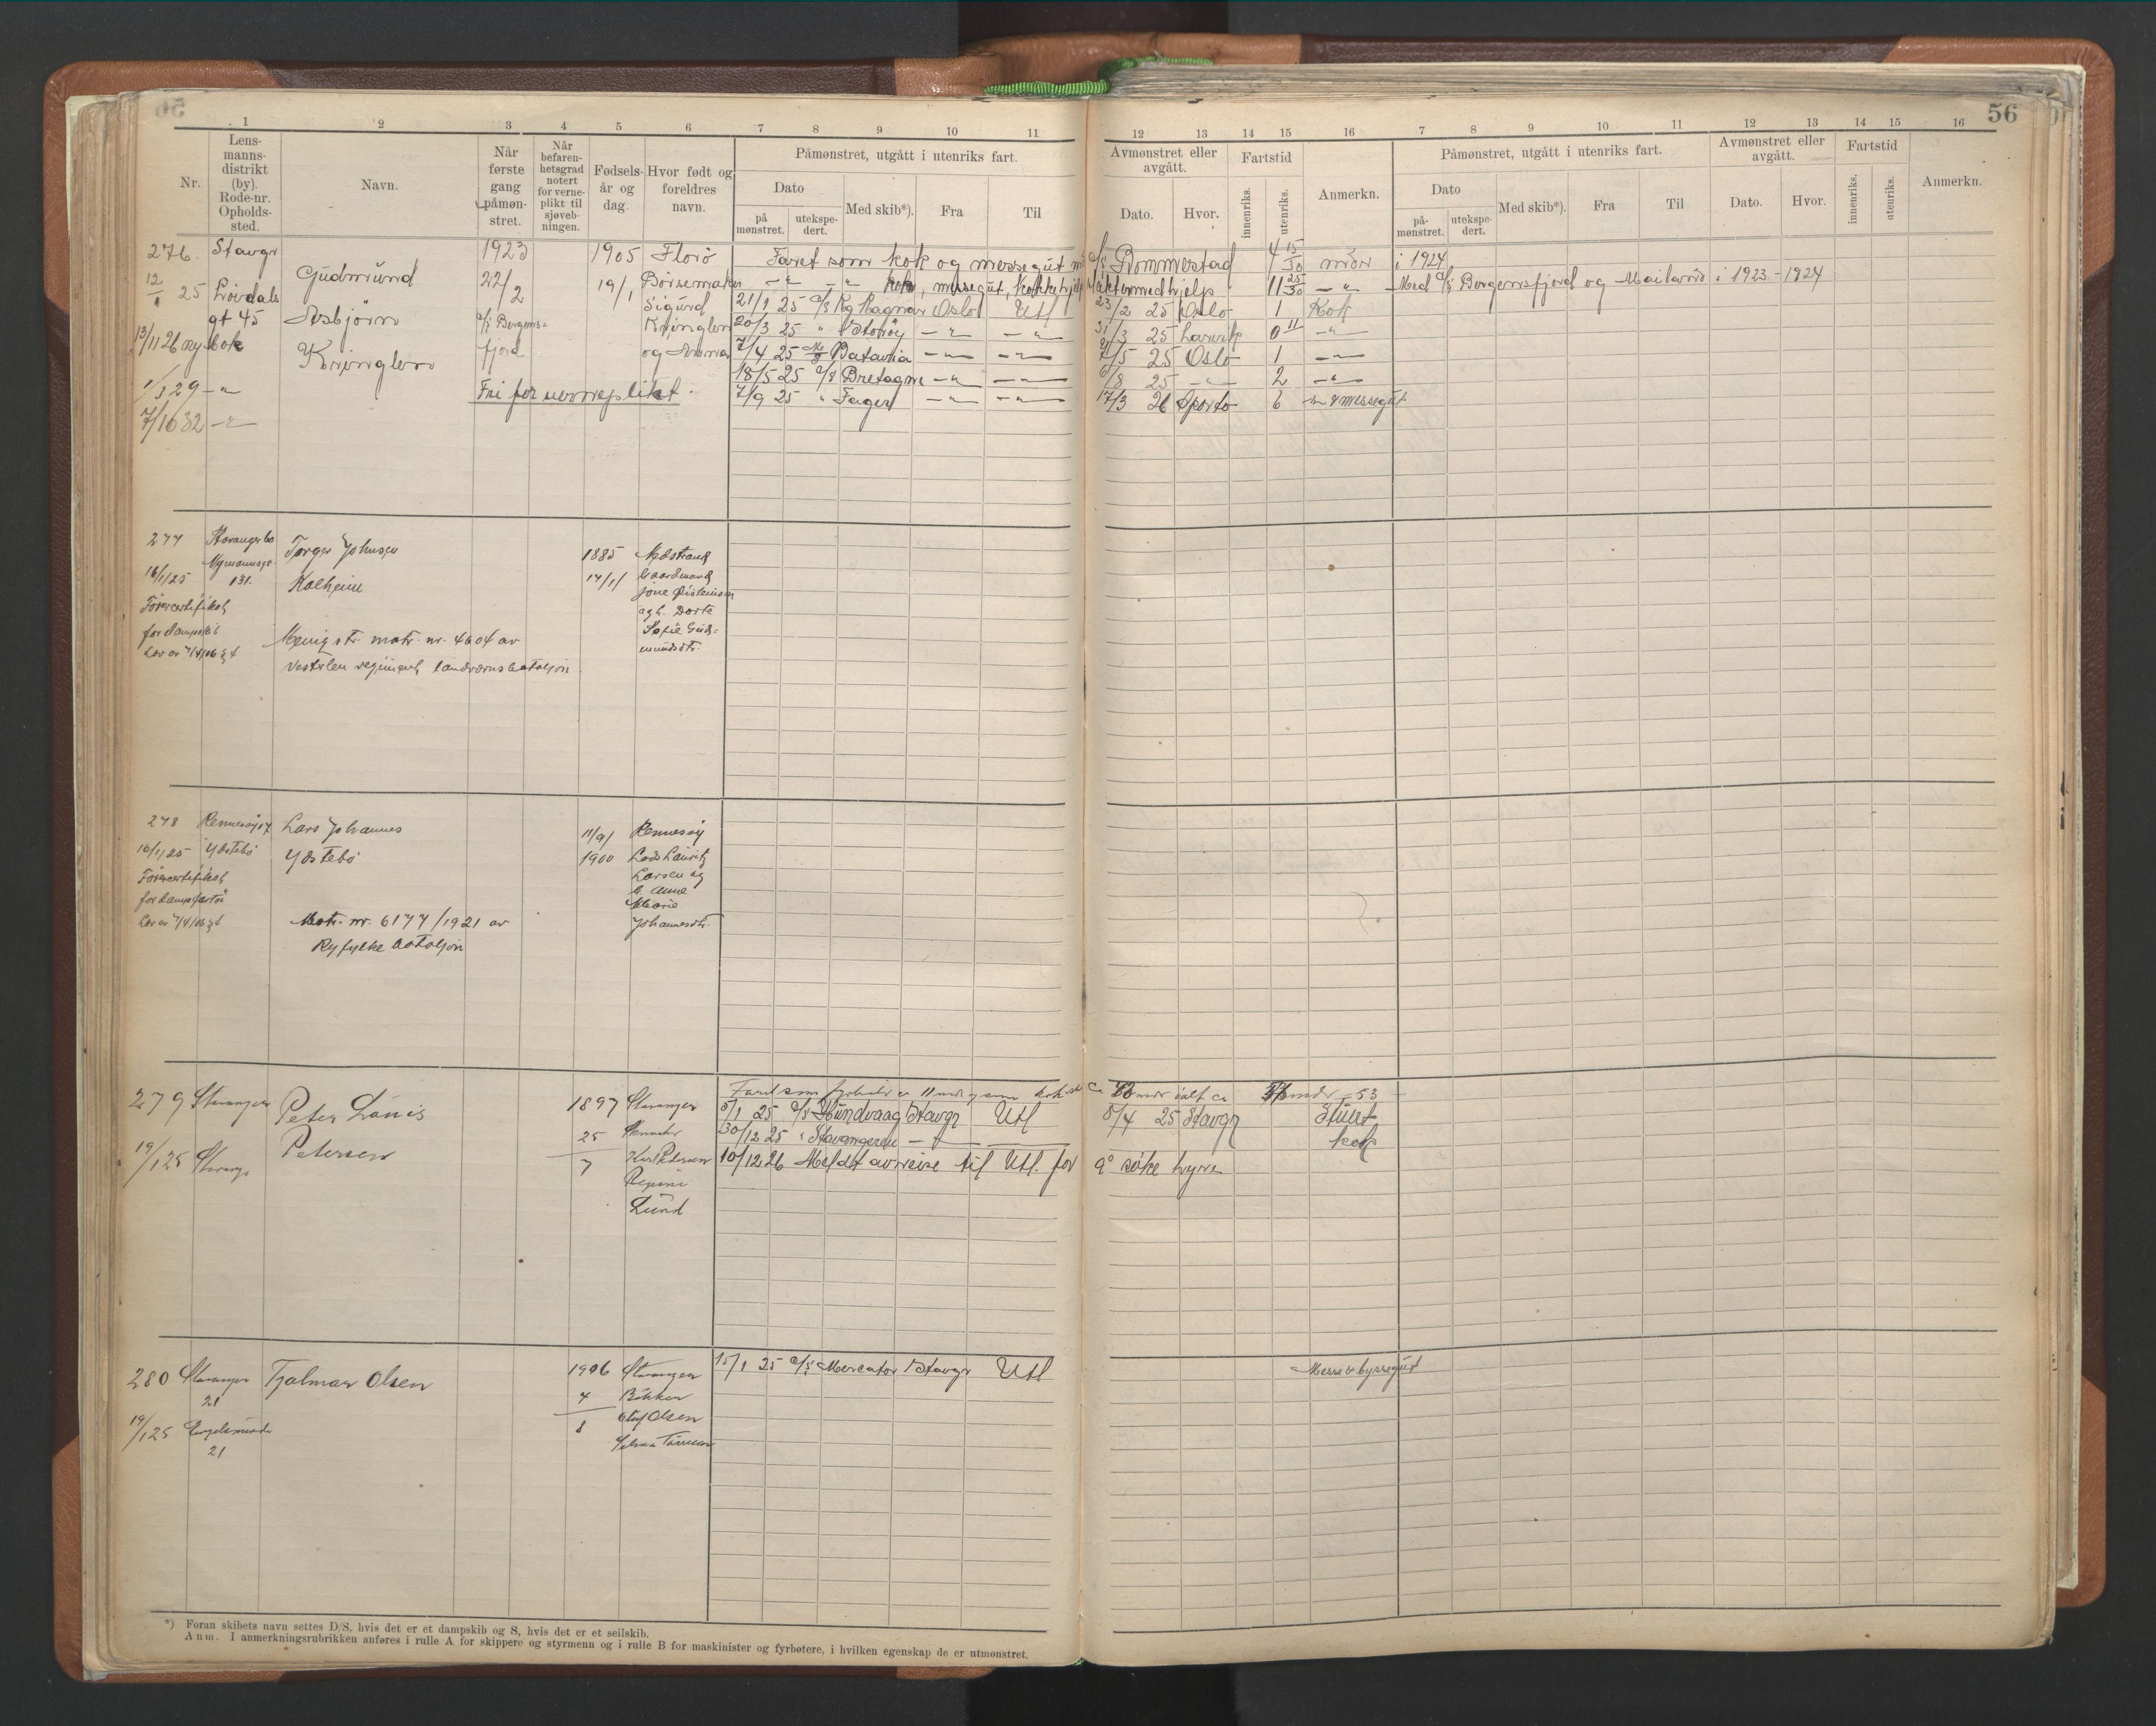 56
1 2 3 4 5 6 7 8 9 10 11
12 13 14 15 16 7 8 9 10 11 12 13 14 15 16
Nr.
Lens-
manns-
distrikt
(by).
Rode-nr.
Opholds-
sted.
Navn.
Når
første
gang
påmøn-
stret.
Når
befaren-
hetsgrad
notert
for verne-
plikt til
sjøveb-
ningen.
Fødsels-
år og
dag.
Hvor født og
foreldres
navn.
Påmønstret, utgått i utenriks fart.
Dato
på
mønstret.
utekspe-
dert.
Med skib*).
Fra
Til
Avmønstret eller
avgått.
Dato.
Hvor.
Fartstid
innenriks.
utenriks.
Anmerkn.
Påmønstret, utgått i utenriks fart.
Dato
på-
mønstret.
utekspe-
dert.
Med skib*).
Fra
Til
Avmønstret eller
avgått.
Dato.
Hvor.
Fartstid
innenriks.
utenriks.
Anmerkn.
276. Stavgr
12/1 25 Løvdals
gt 45
13/11 26 ny bok
1/3 29 -"-
7/10 32 -"-
Gudmund
Asbjørn
Kringlen
1923
22/2
d/s Bergens-
fjord
Fri for verneplikt.
1905
19/1
Florø
Børsemaker
Sigurd
Kringlen
og Anna
Faret som kok og messegut m d/s Bommestad 4 15/30 mdr i 1924
-"- -"- kok, messegut, kokkehjelp 11 25/30 -"- Med d/s Bergensfjord og Mailand i 1923-1924
21/1 25 d/s Kg Ragnar Oslo Utl 23/2 25 Oslo 1 Kok
20/3 25 " Storøy -"- -"- 31/3 25 Larvik 0 11 -"-
7/4 25 M/S Batavia -"- -"- /5 25 Oslo 1 -"-
18/5 25 d/s Bretagne -"- -"- /8 25 -"- 2 -"-
7/9 25 " Fager -"- -"- 17/3 26 Sporto 6 messegut
277 Stavanger
16/1/25 Nymannsgt
131.
Førercertifikat
for dampskib
Lov av 7/4/06 § 4
Torger Johnsen
Kalheim
Menig str. matr. nr. 4604 av
Vesterlen regiment, landvernsbataljon.
1885
17/1/
Nedstrand
Gaardmand
Jone Øisteinsen
og h. Dorte
Sofie Gud-
mundsdtr.
278 Rennesøy
16/1/25 Ydstebø
Førercertifikat
for dampfartøi
Lov av 7/4/06 § 4
Lars Johannes
Ydstebø
Matr. nr. 6177/1921 av
Ryfylke bataljon
11/9/
1900
Rennesøy
Lods Lauritz
Larsen og
h. Anne
Marie
Johannesdtr.
279 Stavanger
19/1 25 Stavangr
Peter Louis
Petersen
1897
25
7
Stavanger
Karl Petersen
Regine
Lund
Faret som fyrbøter
5/1 25 d/s Hundvaag Stavgr Utl 8/4 25 Stavgr Stuert
30/12 25 " Stavangeren -"- kok
10/12 26 Meldt avreise til Utl. for å søke hyre
280 Stavanger
21
19/1 25
21
Hjalmar Olsen
1906
4
8
Stavanger
Bøkker
Olaf Olsen
15/1 25 d/s Mercator Stavgr Utl Messe & byssegut
*) Foran skibets navn settes D/S, hvis det er et dampskib og S, hvis det er et seilskib.
Anm. I anmerkningsrubrikken anføres i rulle A for skippere og styrmenn og i rulle B for maskinister og fyrbøtere, i hvilken egenskap de er utmønstret.